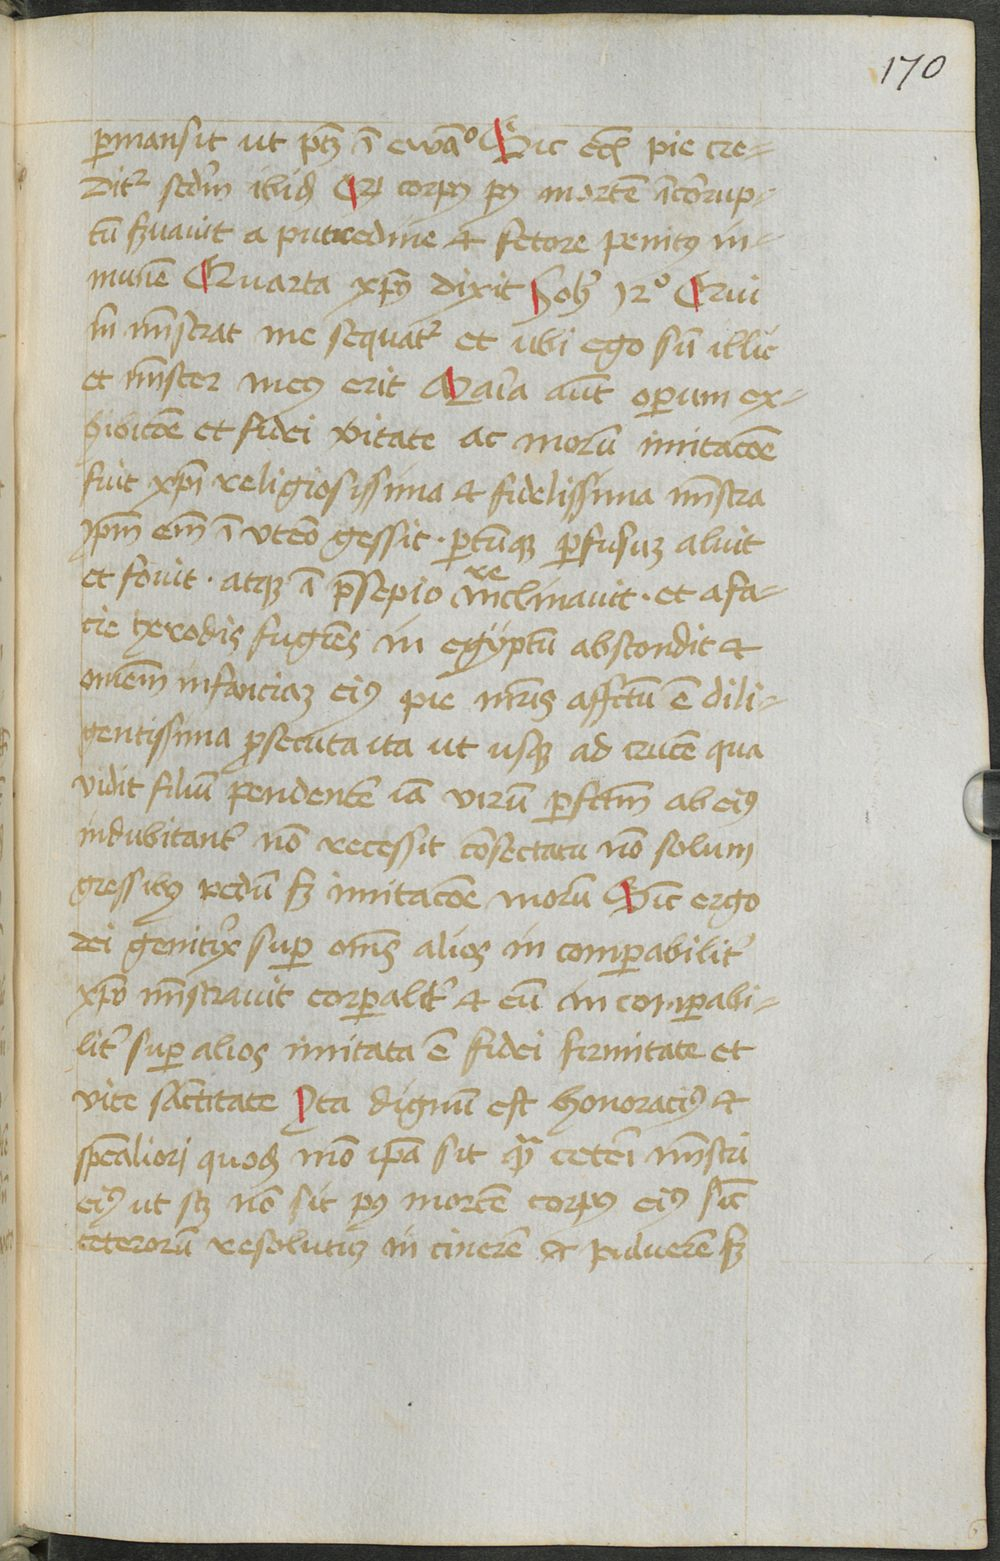 170
ꝑmansit ut ptꝫ ī ewā° Sic ecī pie cre-
dit᷑ sedm̄ ibid Qd corpꝰ pꝰ mortē īcorrup-
tū ſꝫuauit a putredine et fetore penitꝰ in-
munē Quarta xp̄s dixit Joh̄ 12° Qui
m̄ mīstrat me sequat᷑ et ubi ego sū illic
et mīster meꝰ erit Maīa aūt operum ex-
hibicōe et fidei vitate ac morū imitacōe
fuit xp̄i religiosissima et fidelissima mīstra
ip̄m em̄ ī vteō gessit · ꝑtūqꝫ ꝑfusuꝫ aluit
et fovit · atqꝫ ī p̄sepio reinclinauit · et a fa-
cie herodis fugiēs in egyptū abscondit et
omēm infanciaꝫ eiꝰ pie mr̄is affctū ē dili-
gentissima ꝓsecuta ita ut usqꝫ ad crucē qua
vidit filiū pendentē iā virū ꝑfctm̄ ab eiꝰ
indubitant᷑ nō recessit cōsectatu nō solum
gressibꝰ pedū sꝫ imitacōe morū Sic ergo
dei genit᷑x suꝑ om̄s alios in comꝑabilit᷑
xp̄o mīstrauit corꝑalit᷑ et eū in comꝑabi-
lit᷑ suꝑ alios imitata ē fidei firmitate et
vite sāctitate Ita dignū est honoraciꝰ et
spēaliori quodā mō ip̄a sit qᷓ ceteri mīstri
eiꝰ ut sꝫ nō sit pꝰ mortē corpꝰ eiꝰ sic̄
ceterorū resolutuꝫ in cinerē et puluerē sꝫ